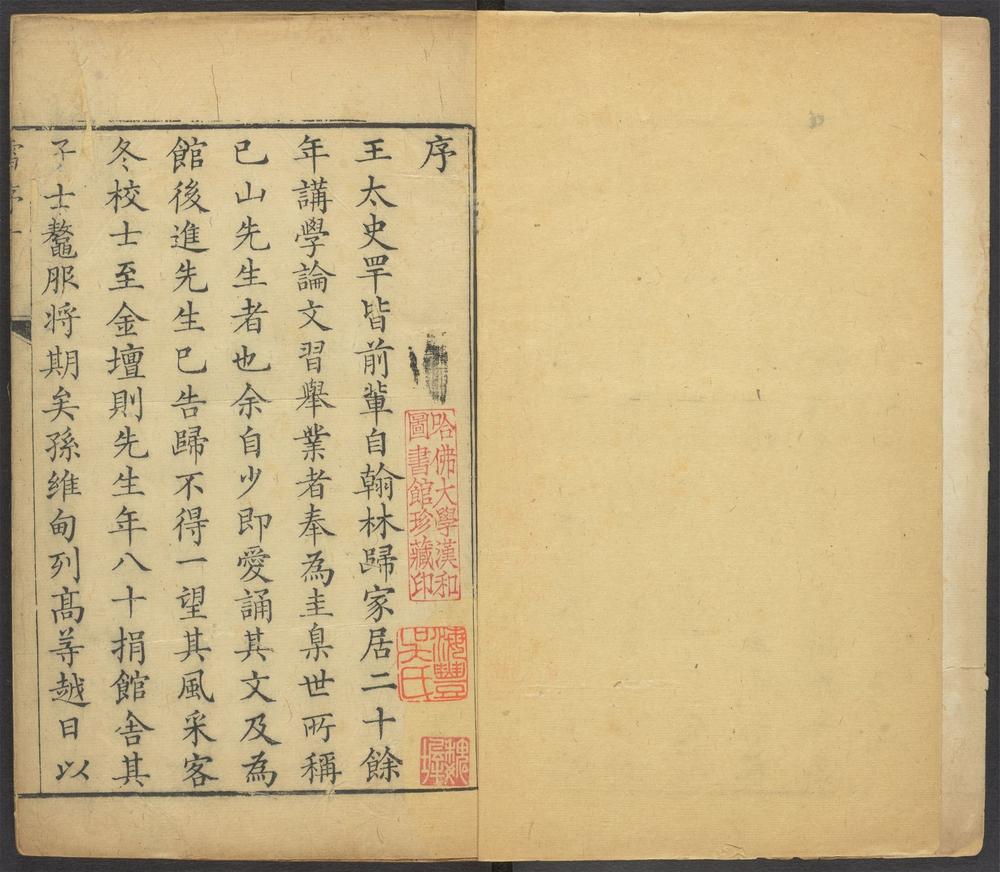 序
王太史罕皆前輩自翰林歸家居二十餘
年講學論文習舉業者奉為圭臬世所稱
已山先生者也余自少即愛誦其文及為
館後進先生已告歸不得一望其風采客
冬校士至金壇則先生年八十捐館舍其
子士鼇服将期矣孫維甸列髙等越日以
序
哈佛大學漢和
圖書館珍藏印
海豐
吳氏